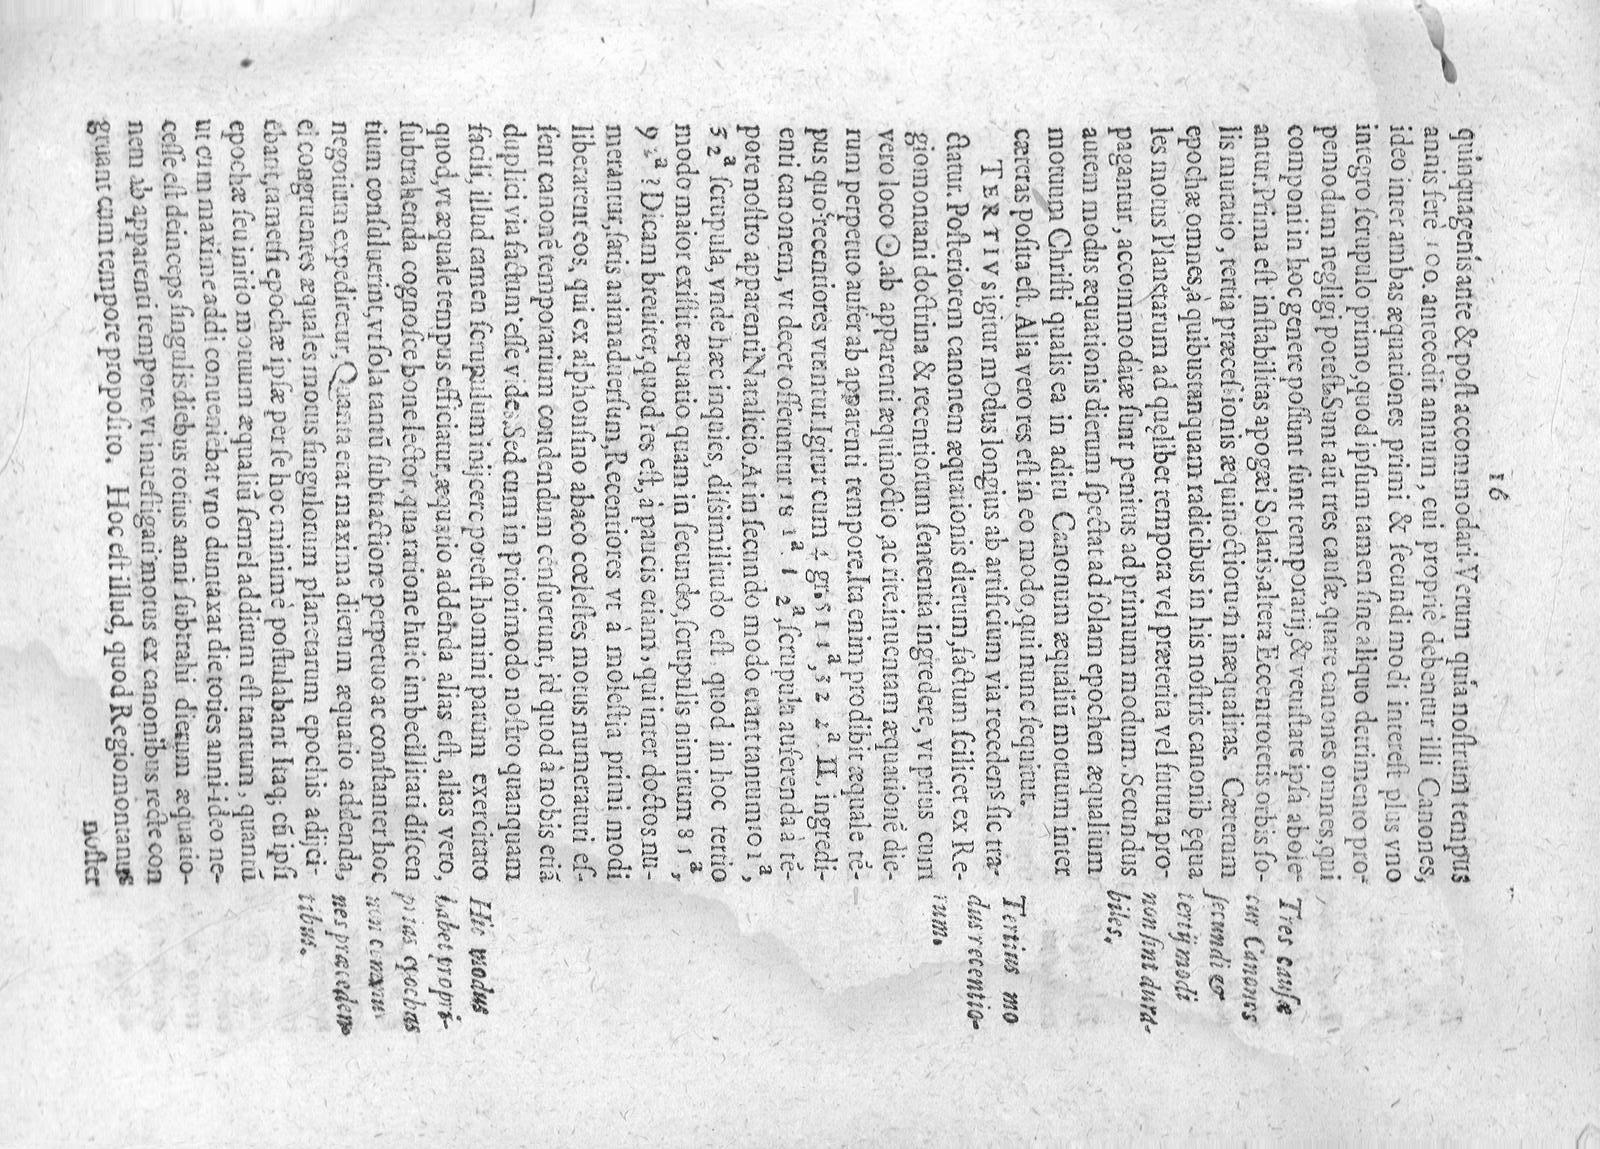 16
quinquagenis ante & poſt accommodari. Verum quia noſtrum tempus
annis ferè 100. antecedit annum, cui propriè debentur illi Canones,
ideo inter ambas æquationes primi & ſecundi modi intereſt plus vno
integro ſcrupulo primo, quod ipſum tamen ſine aliquo detrimento pro-
pemodum negligi poteſt. Sunt aũt tres cauſæ, quare canones omnes, qui
componi in hoc genere poſſunt ſunt temporarij, & vetuſtate ipſa abole-
antur. Prima eſt inſtabilitas apogæi Solaris, altera Eccentrotetis orbis ſo-
lis mutatio, tertia præceſsionis æquinoctiorum inæqualitas. Cæterum
epochæ omnes, à quibus tanquam radicibus in his noſtris canonib ęqua
les motus Planetarum ad quęlibet tempora vel præterita vel futura pro-
pagantur, accommodatæ ſunt penitus ad primum modum. Secundus
autem modus æquationis dierum ſpectat ad ſolam epochen æqualium
motuum Chriſti qualis ea in aditu Canonum æqualiũ motuum inter
cæteras poſita eſt. Alia vero res eſt in eo modo, qui nunc ſequitur.
TERTIVS igitur modus longius ab artificium via recedens ſic tra-
ctatur. Poſteriorem canonem æquationis dierum, factum ſcilicet ex Re-
giomontani doctrina & recentiorum ſententia ingredere, vt prius cum
vero loco ☉ ab apparenti æquinoctio, ac rite inuentam æquationẽ die-
rum perpetuo aufer ab apparenti tempore. Ita enim prodibit æquale tẽ-
pus quo recentiores vtuntur. Igitur cum gr. 5 11ª, 32 2ª II, ingredi-
enti canonem, vt decet offeruntur 18 1ª. 1 2ª, ſcrupula auferenda à tẽ-
pore noſtro apparenti Natalicio. At in ſecundo modo erant tantum 10 1ª,
52ª ſcrupula, vnde hæc inquies, diſsimilitudo eſt quod in hoc tertio
modo maior exiſtit æquatio quam in ſecundo, ſcrupulis nimirum 8 1ª,
9 2ª? Dicam breuiter, quod res eſt, à paucis etiam, qui inter doctos nu-
merantur, ſatis animaduerſum, Recentiores vt à moleſtia primi modi
liberarent eos, qui ex alphonſino abaco cœleſtes motus numeraturi eſ-
ſent canonẽ temporarium condendum cenſuerunt, id quod à nobis etiã
duplici via factum eſſe vides. Sed cum in priori modo noſtro quanquam
facili, illud tamen ſcrupulum inijcere poteſt homini parum exercitato
quod, vt æquale tempus efficiatur, æquatio addenda alias eſt, alias vero,
ſubtrahenda cognoſce bone lector, qua ratione huic imbecillitati diſcen
tium conſuluerint, vt ſola tantũ ſubtractione perpetuo ac conſtanter hoc
negotium expedietur, Quanta erat maxima dierum æquatio addenda,
ei congruentes æquales motus ſingulorum planetarum epochis adijci-
ebant, tametſi epochæ ipſæ per ſe hoc minimè poſtulabant Itaq; cũ ipſi
epochæ ſeu initio motuum æqualiũ ſemel additum eſt tantum, quantũ
ut cum maxime addi conueniebat vno duntaxat die, toties anni ideo ne-
ceſſe eſt deinceps ſingulis diebus totius anni ſubtrahi dierum æquatio-
nem ab apparenti tempore, vt inueſtigati motus ex canonibus recte con
gruant cum tempore propoſito. Hoc eſt illud, quod Regiomontanus
noſter
Tres cauſæ
cur Canones
ſecundi &
tertij modi
non ſint dura-
biles.
Tertius mo
dus recentio-
rum.
Hic modus
habet propri-
as epochas
præceden-
tibus.